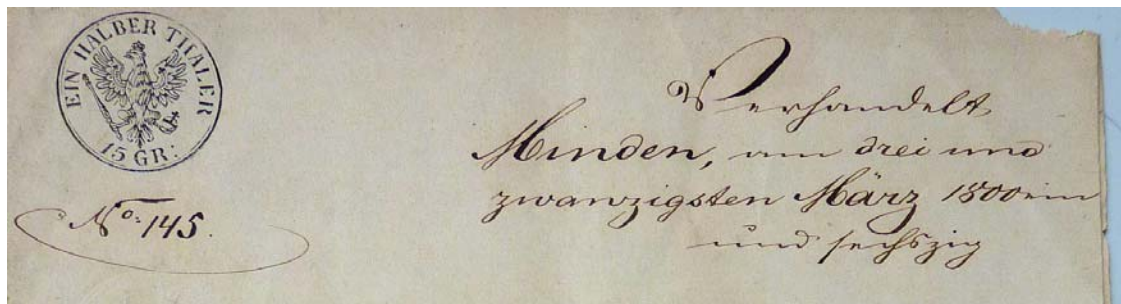 EIN HALBER THALER
15 GR:
No: 145.
Verhandelt
Minden, am drei und
zwanzigsten März 1800 ein
und sechszig